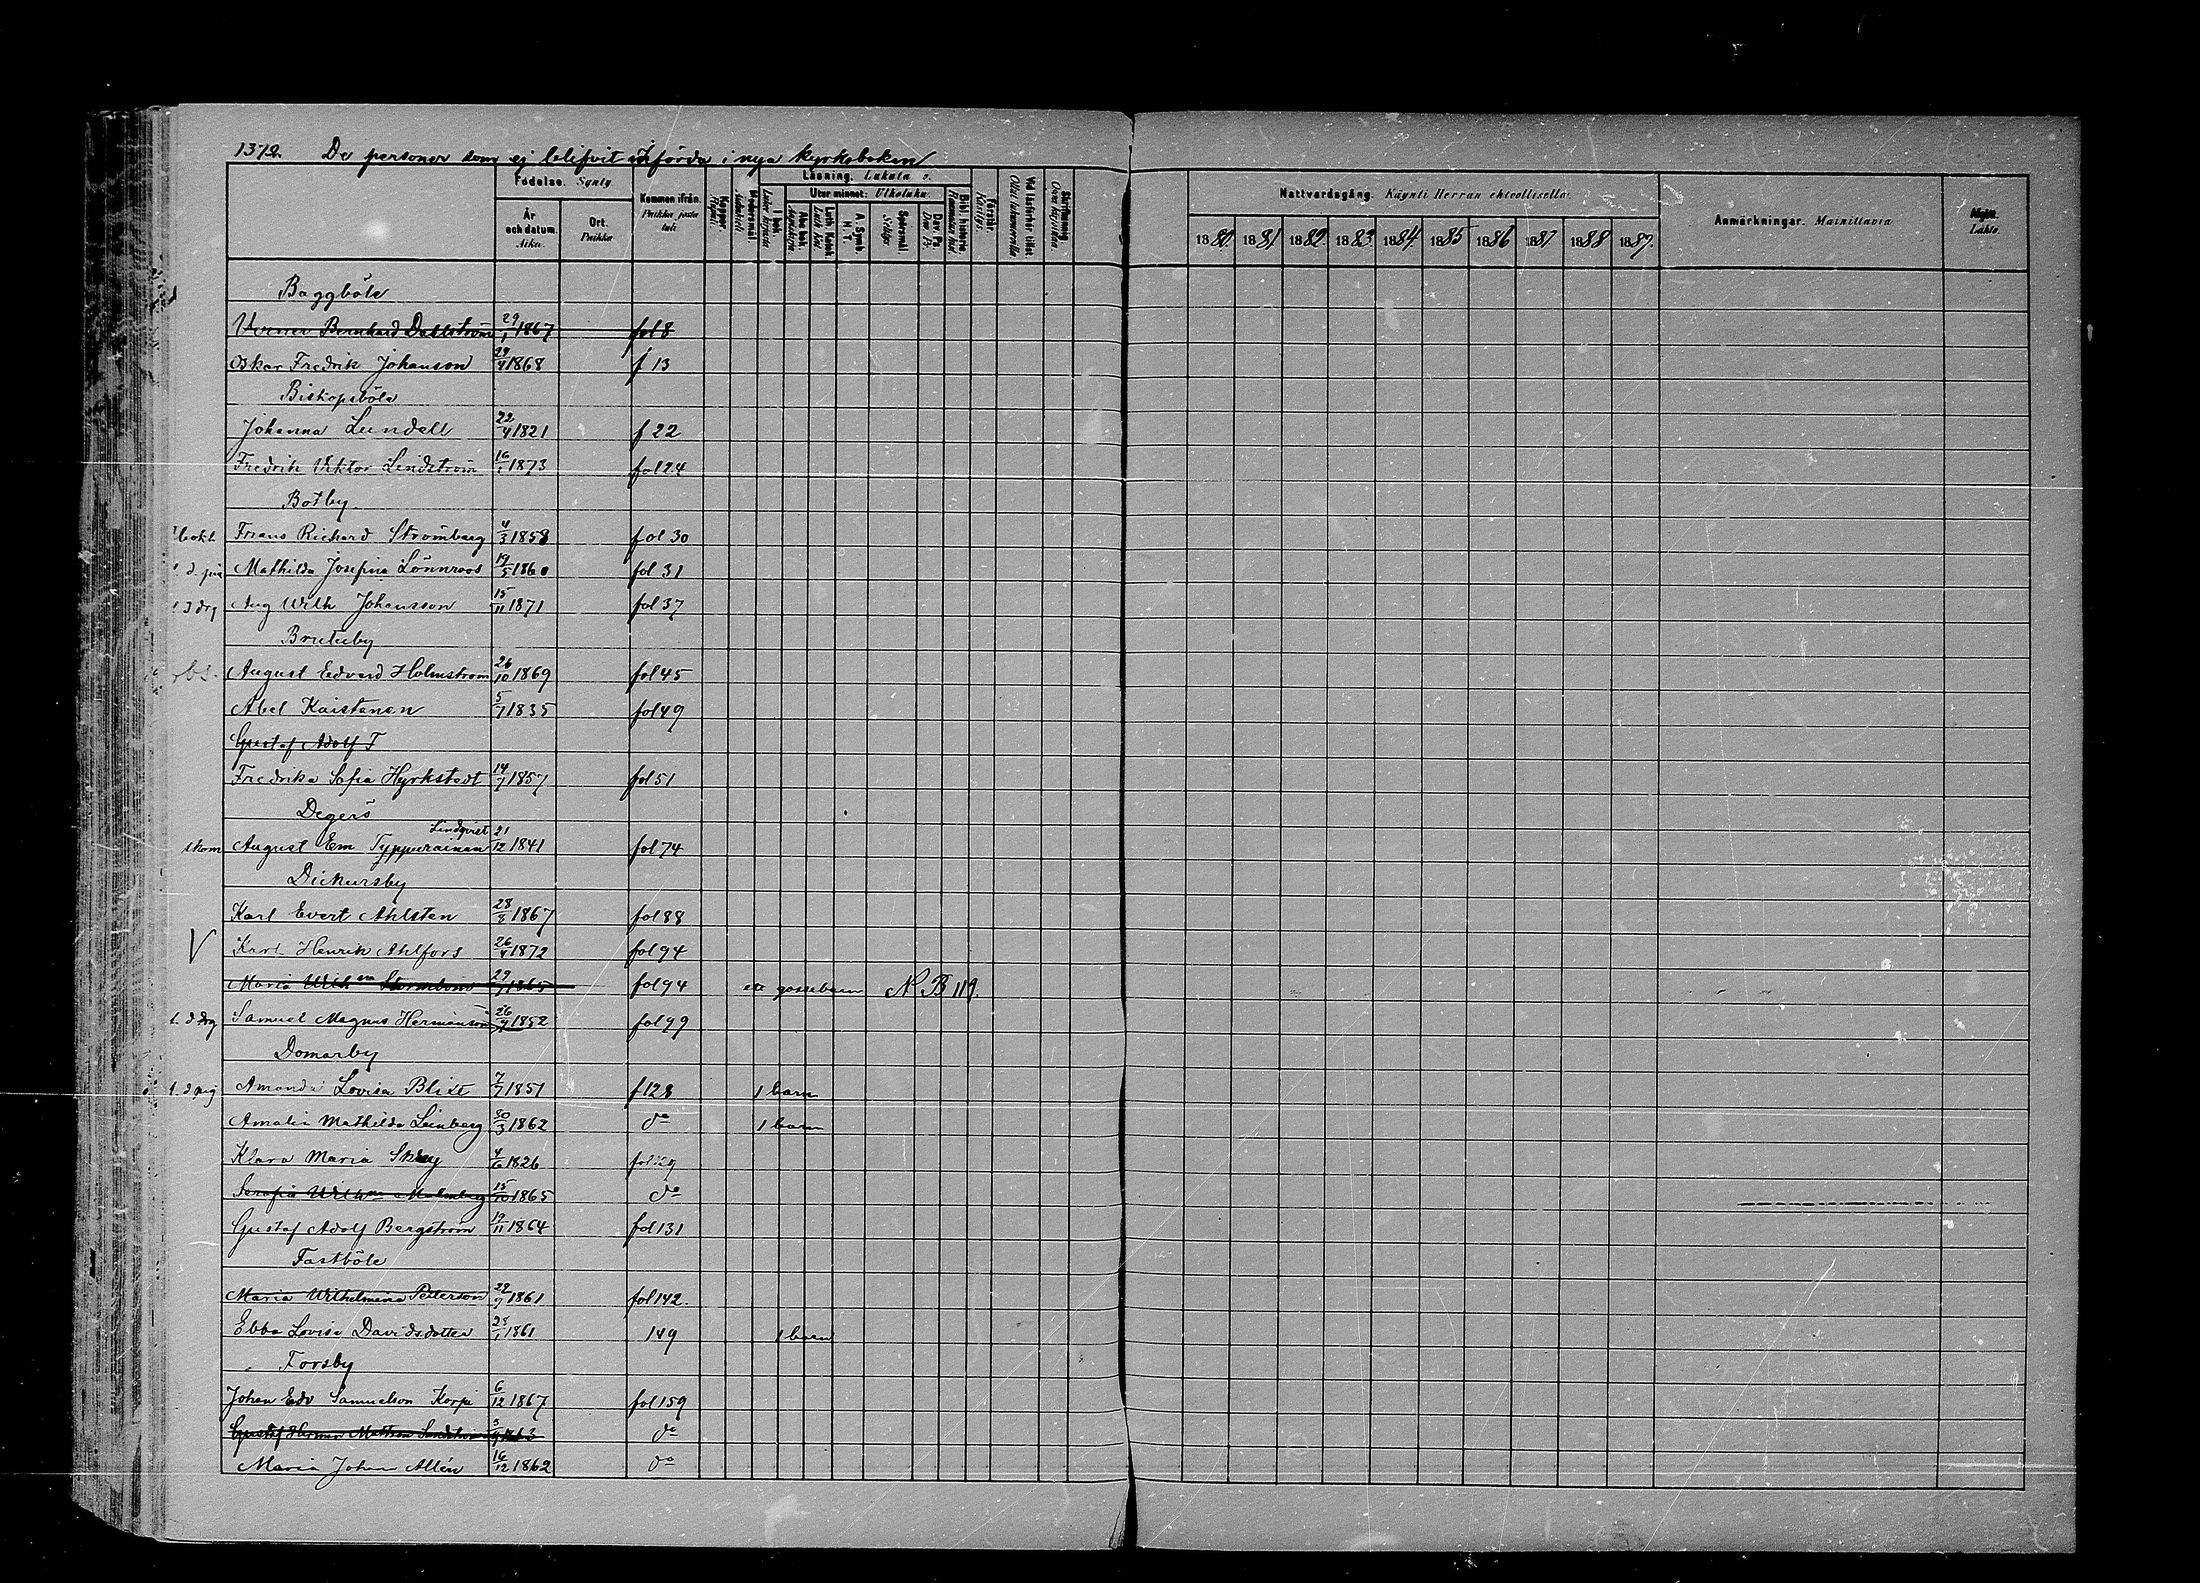 1372. De personer som ej blifvit införda i nya kyrkoboken
Födelse. Synty
År och datum. Aika.
Ort. Paikka
Kommen ifrån. Paikka josta tuli
Koppor. Rupuli.
Läsning. Lukuta
I bok.
Utur minnet: Ulkoluku.
Abc bok.
Luth. Katek.
A. Symb.
H. T.
Spörsmål.
Dav. Ps.
Bibl. historia.
Förstår. Käsitys.
Vid läsförhör tillst.
Skriftmning.
Nattvardsgång. Käynti Herran ehtoollisella.
1880. 1881 1882. 1883. 1884. 1885 1886 1887 1888 1889.
Anmärkningar. Mainittavia
Lähtö.
Baggböle
Verner Bernhard Dahlström 29/1 1867 fol 8
Oskar Fredrik Johanson 29/4 1868 f 13
Biskopsböle
Johanna Lundell 22/4 1821 f 22
Fredrik Viktor Lindström 16/1 1873 fol 24
Botby.
Frans Richard Strömberg 4/3 1858 fol 30
Mathilda Josefina Lönnroos 19/5 1860 fol 31
Aug Wilh Johansson 15/11 1871 fol 37
Bruteby
obs. August Edvard Holmström 26/10 1869 fol 45
Abel Kaistanen 5/7 1835 fol 49
Gustaf Adolf T
Fredrika Sofia Hyrkstedt 14/7 1857 fol 51
Degerö
Lindqvist
skom August Em Typpurainen 21/12 1841 fol 74
Dickursby
Karl Evert Ahlsten 28/8 1867 fol 88
V Karl Henrik Ahlfors 26/4 1872 fol 94
Maria Wilh:na 29/7 1865 fol 94 gossebarn N.B 119.
Samuel Magnus Hermanson 26/4 1852 fol 99
Domarby
Amanda Lovisa Blixt 7/7 1851 f 128 1 barn
Amalia Mathilda Leinberg 30/3 1862 do 1 barn
Klara Maria Skog 4/6 1826 fol 129
Serafia Wilh:na Malmberg 15/10 1865 do
Gustaf Adolf Bergström 19/11 1864 fol 131
Fastböle
Maria Wilhelmina Petterson 22/9 1861 fol 142.
Ebba Lovisa Davidsdotter 28/1 1861 149 1 barn
Forsby
Johan Edv Samuelson Korpi 6/12 1867 fol 159
Gustaf Herman Mattson do
Maria Johan Allén 16/12 1862 do